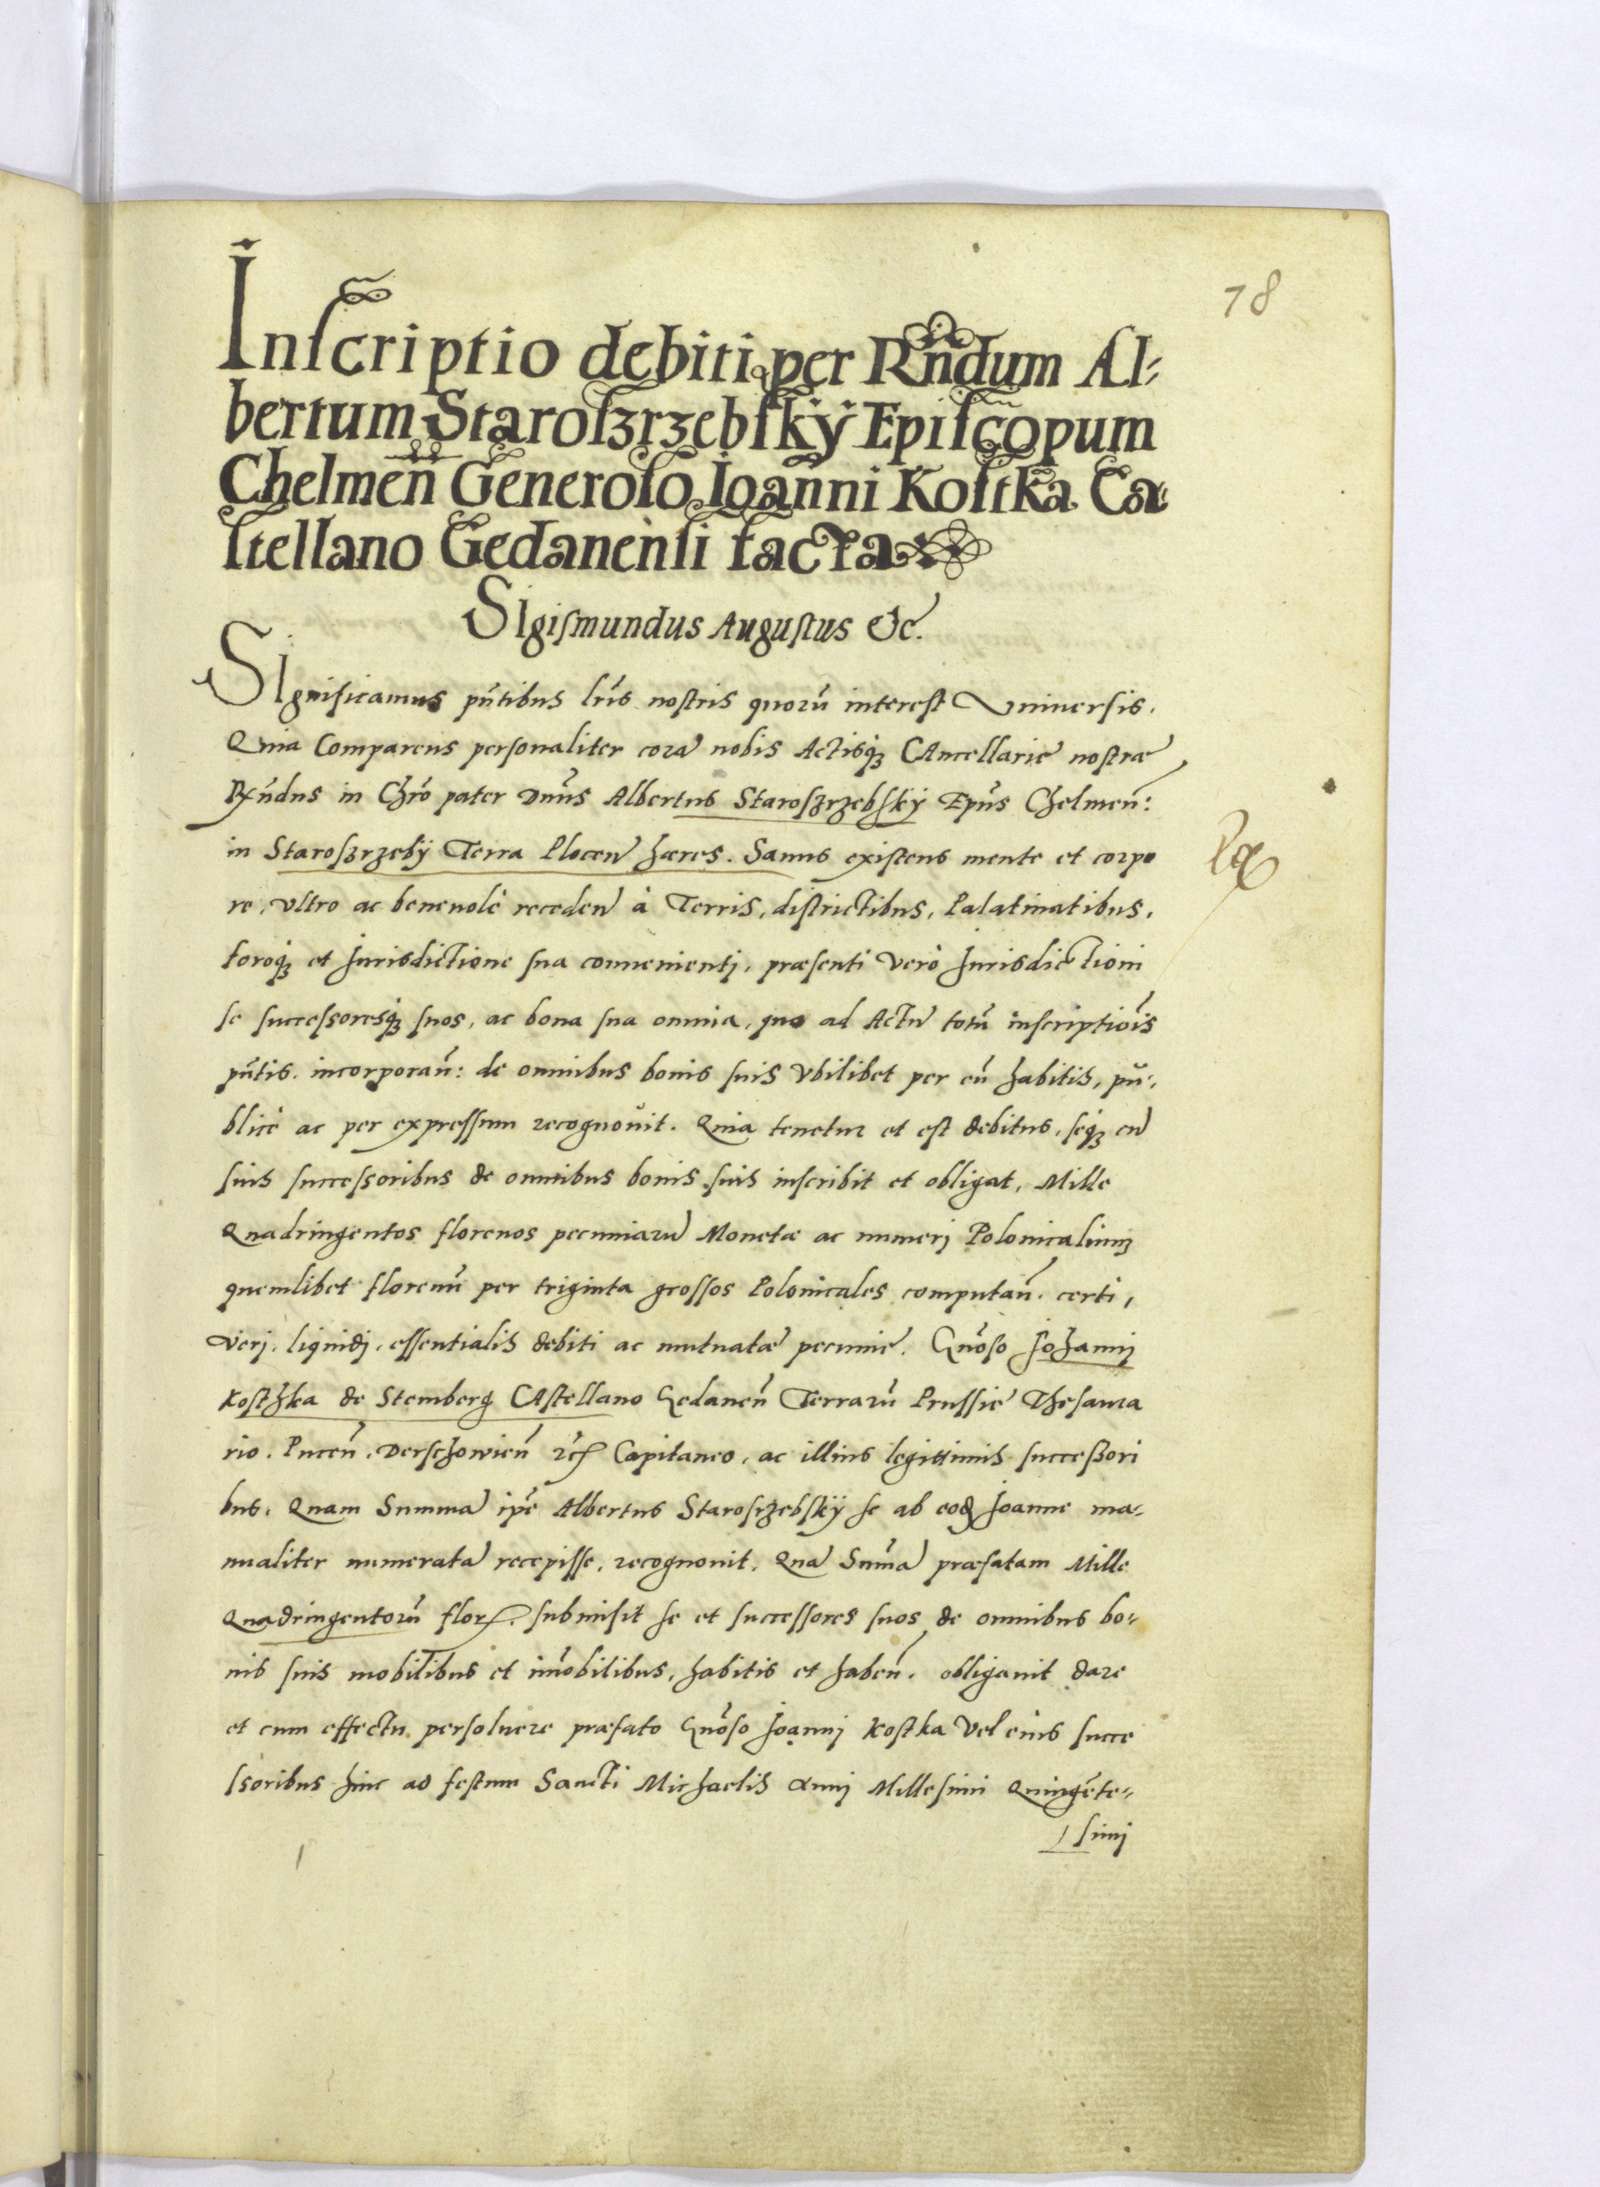 78
Inscriptio debiti per Rñdum Al-
bertum Staroszrzebskÿ Episcopum
Chelmeñ Generoso Joanni Kostka Ca-
stellano Gedanensi facta
Sigismundus Augustus &c.
Significamus pñtibus lr̃is nostris quorũ interest Vniuersis.
Quia Comparens personaliter corã nobis Actisq₃ Cancellarie nostræ
Rx̃ndus in Chrõ pater Dnũs Albertus Staroszrzebskÿ Epũs Chelmeñ:
in Staroszrzebÿ Terra Ploceñ hæres. Sanus existens mente et corpo
re, vltro ac beneuolè recedeñ à Terris, districtibus, Palatinatibus,
foroq₃ et Jurisdictione sua conuenientj, præsenti verò Jurisdictioni
se successoresq₃ suos, ac bona sua omnia, quo ad Actũ totũ inscriptiõis
pñtis. incorporañ: de omnibus bonis suis vbilibet per eũ habitis, pu-
blicè ac per expressum recognouit. Quia tenetur et est debitus, seq₃ cũ
suis successoribus de omnibus bonis suis inscribit et obligat, Mille
Quadringentos florenos pecuniarũ Monetæ ac numerj Polonicaliũ
quemlibet florenũ per triginta grossos Polonicales computañ. certi,
verj. liquidj, essentialis debiti ac mutuatæ pecunie. Gñoso Johannj
Kosthka de Stemberg Castellano Gedaneñ Terrarũ Prussie Thesaura
rio. Puceñ. Derschowieñ Capitaneo, ac illius legittimis successori
bus. Quam Summã ip̃e Albertus Starosrzebskÿ se ab eodẽ Joanne ma-
nualiter numeratã recepisse, recognouit. Quã Sum̃ã præfatam Mille
Quadringentorũ flor. submisit se et successores suos de omnibus bo-
nis suis mobilibus et im̃obilibus, habitis et habeñ. obligauit dare
et cum effectu persoluere præfato Gñoso Joannj Kostka vel eius succe
ssoribus hinc ad festum Sancti Michaelis Annj Millesimi Quingẽte-
simj